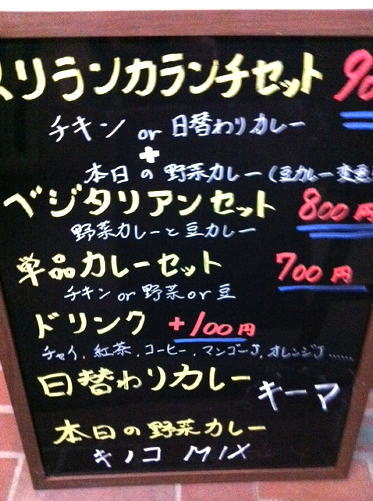 スリランカランチセット 90
チキン or 日替わりカレー
+
本日の野菜カレー(豆カレー変更
ベジタリアンセット 800円
野菜カレーと豆カレー
単品カレーセット 700円
チキン or 野菜 or 豆
ドリンク +100円
チャイ、紅茶、コーヒー、マンゴーJ、オレンジJ......
日替わりカレー キーマ
本日の野菜カレー
キノコ MIX